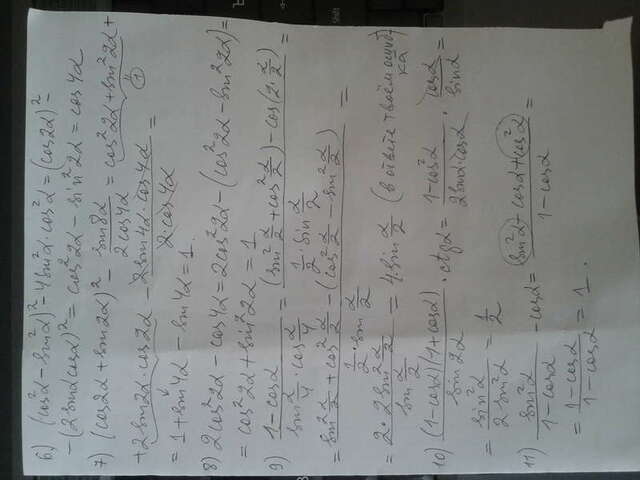 6) (cos²α-sin²α)²-4sin²α·cos²α=(cos2α)²-
-(2sinαcosα)²=cos²2α-sin²2α=cos4α
7) (cos2α+sin2α)²-sin8α/2cos4α=cos²2α+sin²2α+
1
+2sin2α·cos2α-2sin4α·cos4α/2cos4α=
=1+sin4α-sin4α=1.
8) 2cos²2α-cos4α=2cos²2α-(cos²2α-sin²2α)=
=cos²2α+sin²2α=1
9) 1-cosα/sin α/4·cos α/4=(sin² α/2+cos² α/2)-cos(2·α/2)/½·sin α/2=
=sin² α/2+cos² α/2-(cos² α/2-sin² α/2)/½·sin α/2=
=2·2sin² α/2/sin α/2=4·sin α/2 (в ответе твоём ошибка
10) (1-cosα)(1+cosα)/sin2α·ctgα=1-cos²α/2sinα·cosα·cosα/sinα=
=sin²α/2sin²α=1/2
11) sin²α/1-cosα-cosα=(sin²α-cosα+cos²α)/1-cosα=
=1-cosα/1-cosα=1.